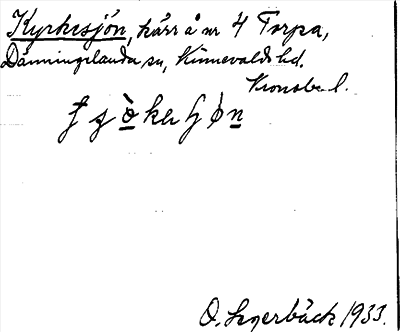 Kyrkesjön, kärr å nr 4 Torpa,
Dänningelanda sn, Kinnevalds hd.
Kronobe. l.
O. Segerbäck 1933.